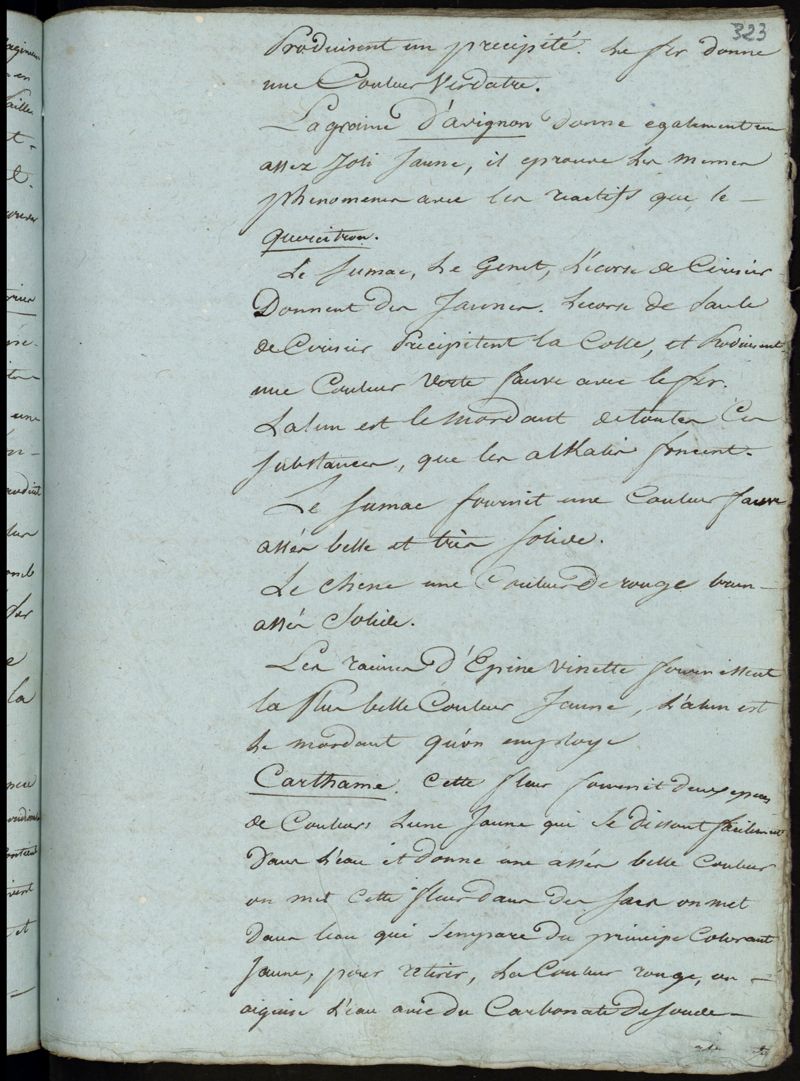 323
Produisent un precipité. Le fer donne
une Couleur Verdatre.
La graine d'avignon donne egalement un
assez Joli Jaune, il eprouve les memes
phenomenes avec les reactifs que le -
quercitron.
Le Sumac, Le Genet, L'écorse de Cerisier
Donnent des Jaunes. Lecorse de Saule
de Cerisier Precipitent la Colle, et Produisent
une Couleur Verte fauve avec le fer.
L'alun est le Mordant de toutes Ces
Substances, que les alkalis foncent.
Le Sumac fournit une Couleur fauve
assés belle et très Solide.
Le chene une Couleur de rouge brun -
assés Solide.
Les racines d'Epine vinette fournissent
la Plus belle Couleur Jaune, L'alun est
Le mordant qu'on employe
Carthame. Cette fleur fournit deux especes
de Couleurs Lune Jaune qui Se dissout facilement
Dans L'eau et donne une assés belle Couleur
on met cette fleur dans des Sacs on met
Dans leau qui S'empare Du principe Colorant
Jaune, pour retirer, La Couleur rouge, on -
aiguise L'eau avec du Carbonate De Soude -